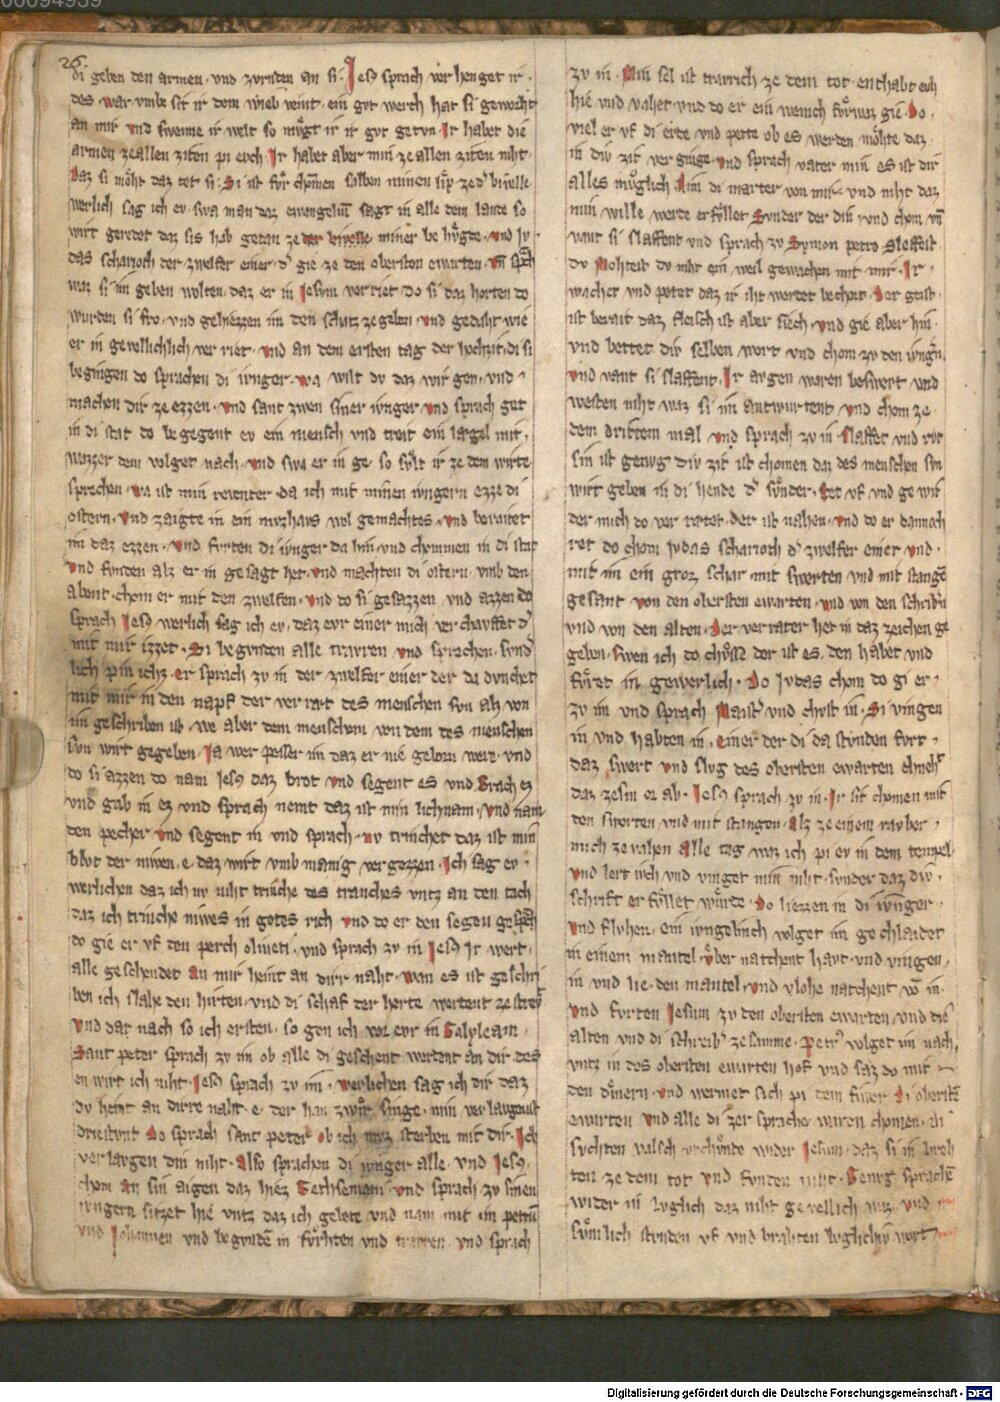 00094939
26.
di geben den armen · vnd zvrnden an si · Jesus sprach verhenget ir ·
des · war vmbe sit ir dem wieb veint · ein gvt werch hat si gewocht
an mir vnd swenne ir welt so mvgt ir ir gvt getvn · Ir habet die
armen zeallen ziten pi evch · Ir habet aber min ze allen ziten niht ·
Daz si moht daz tet si · Si ist fvr chomen salben minen lip ze der bivelle
werlich sag ich ev · swa man daz ewengelium sagt in alle dem lante so
wirt geredet daz sis hab getan ze der bivelle miner be hvgde · vnd Jv
das scharioch der zwelfer einer · der gie ze den obersten ewarten · vnd sprach
waz si im geben wolten · daz er in Jesum verriet · do si daz horten do
wurden si fro · vnd gehiezzen im den schatz ze geben · vnd gedaht wie
er in gevellichlich ver riet · vnd an dem ersten tag der hochzit · di si
begingen do sprachen di ivnger · wa wilt dv daz wir gen · vnd
machen dir ze ezzen · vnd sant zwen siner ivnger vnd sprach get
in di stat do be gegent ev ein mensch vnd treit ein lagel mit
wazzer dem volget nach · vnd swa er in ge · so svlt ir ze dem wirte
sprechen · wa ist min reventer · da ich mit minen ivngern ezze di
ostern · vnd zaigte in ein mvzhavs wol gemachtes · vnd beraitet
im daz ezzen · vnd fvrten di ivnger da hin · vnd chommen in di stat
vnd fvnden alz er in gesagt het · vnd machten di ostern · vmb den
abent · chom er mit den zwelfen · vnd do si gesazzen vnd azzen do
sprach Jesus werlich sag ich ev · daz evr einer mich verchavffet der
mit mir izzet · Si begvnden alle travren vnd sprechen · svnder
lich pin ichz · er sprach zv in der zwelfer einer der da dvnchet
mit mir in den napf der verrart des menschen svn alz von
im geschriben ist · we aber dem menschem von dem des menschen
svn wirt gegeben · Ja wer pesser im daz er nie geborn were · vnd
do si azzen do nam Jesus daz brot vnd segent es vnd brach ez
vnd gab in ez vnd sprach nemt daz ist min lichnam · vnd nam
den pecher vnd segent in vnd sprach · nv trinchet daz ist min
blvt der niwen · e · daz wirt vmb manig vergozzen · Ich sag ev
werlichen daz ich nv niht trinche des tranches vntz an den tach
daz ich trinche niwes in gotes rich vnd do er den segen gesprach
do gie er vf den perch oliueti · vnd sprach zv in Jesus Ir wert
alle geschendet an mir heint an dirr naht · wan es ist geschri
ben ich slahe den hirten · vnd di schaf der herte werdent zestrevt
vnd dar nach so ich ersten · so gen ich vor evr in Galyleam
Sant peter sprach zv im ob alle di geschent werdent an dir · des
en wirt ich niht · Jesus sprach zv im · werlichen sag ich dir daz
dv heint an dirre naht · e · der han zwir singe · min verlavgenst
driestvnt Do sprach sant peter ob ich mvz sterben mit dir · Ich
verlavgen din niht · Also sprachen di ivnger alle · vnd Jesus
chom an sin aigen daz hiez Gethsemani · vnd sprach zv sinen
ivngern sitzet hie vntz daz ich gebete vnd nam mit im petrum
vnd Johannen vnd begvnde in fvrhten vnd travren vnd sprach
zv in · Min sel ist travrich ze dem tot · enthabt evch
hie vnd vahet · vnd do er ein wenich fvrwaz gie · Do
viel er vf di erde vnd pette ob es werden mohte daz
in div zit ver ginge · vnd sprach vater min es ist dir
alles mvglich Nim di marter von mir · vnd niht daz
min wille werde erfvllet Svnder der din · vnd chom vnd
vant si slaffent vnd sprach zv Symon petro Slaffest
dv Mohtest dv niht ein weil gewachen mit mir · Ir
wachet vnd petet daz ir iht werdet bechort · Der geist
ist berait daz fleisch ist aber siech · vnd gie aber hin
vnd bettet div selben wort vnd chom zv den ivngern
vnd vant si slaffent · Ir avgen waren beswert vnd
westen niht waz si im antwurtent vnd chom ze
dem dritten mal vnd sprach zv in slaffet vnd rvt
sin ist genvg div zit ist chomen daz des menschen svn
wirt geben in di hende der svnder · Stet vf vnd ge wir
der mich do ver ratet · der ist nahen · vnd do er dannoch
ret do chom Jvdas scharioch der zwelfer einer vnd
mit im ein groz schar mit swerten vnd mit stangen
gesant von den obersten ewarten · vnd von den schribern
vnd von den alten · Der verrater het in daz zeichen ge
geben · swen ich do chvss der ist es · den habet vnd
fvret in gewerlich · Do Jvdas chom do gi er
zv im vnd sprach Maister vnd chvst in · Si viengen
in vnd habten in · einer der di da stvnden fvrt
daz swert vnd slvg des obersten ewarten chnecht
daz zesm or ab · Jesus sprach zv in · Ir sit chomen mit
den swerten vnd mit stangen · alz ze einem ravber
mich ze vahen alle tag waz ich pi ev in dem tempel
vnd lert evch vnd vinget min niht · svnder daz div
schrift erfvllet wurde · Do liezzen in di ivnger
vnd flvhen · ein ivngelinch volget im gechlaidet
in einem mantel · vber natchent havt · vnd viengen
in vnd lie · den mantel · vnd vlohe natchent von in
vnd fvrten Jesum zv den obersten ewarten · vnd die
alten vnd di schreiber ze samme · Petrus volget im nach
vntz in des obersten ewarten hof vnd saz do mit
den dienern · vnd wermet sich pi dem fiwer Di obersten
ewarten vnd alle di zer sprache waren chomen · di
svchten valsch vrchvnde wider Jesum · daz si in breh
ten ze dem tot vnd fvnden niht · Genvg sprachen
wider in lvglich daz niht gevellich waz vnd
svmlich stvnden vf vnd brahten lvglichiv wort
Digitalisierung gefördert durch die Deutsche Forschungsgemeinschaft - DFG